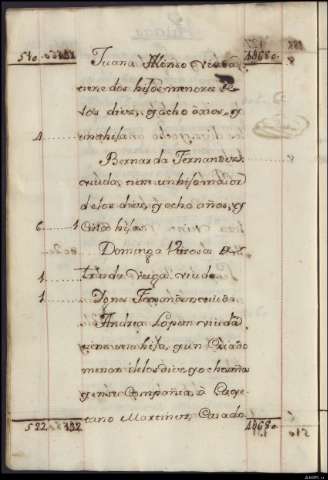 510 132 4068o
Juana Alonso viuda,
tiene dos hijos menores de
los diez, y ocho años, y
4 una hija
Bernarda Fernandez
viuda, tiene un hijo maior
de los diez, y ocho años, y
6 1 cinco hijas
Dominga
1 viuda
1 viuda
Andrea Lopez viuda
tiene una hija, y un Criado
menor de los diez y ocho años
y en su Compañia, a Caye-
tano Martinez, Casado
522 132 4068o